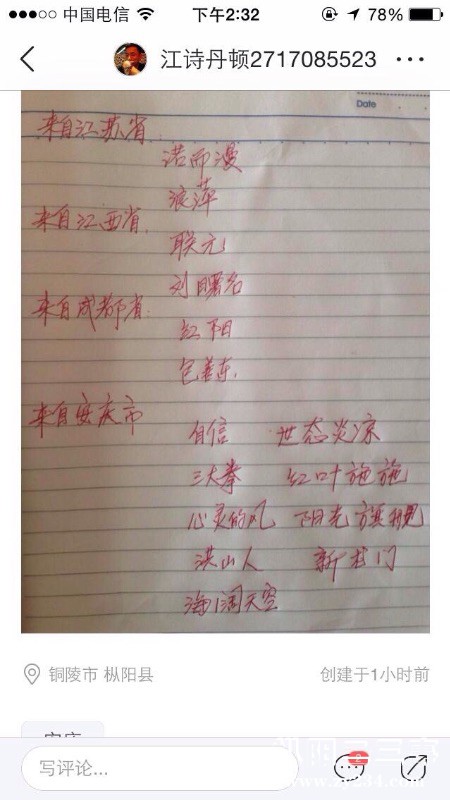 中国电信 下午2:32 78%
江诗丹顿2717085523
Date
来自江苏省
诺而漫
浪萍
来自江西省
联元
刘曙名
来自成都省
红阳
包善东
来自安庆市
自信 世态炎凉
三大拳 红叶施施
心灵的风 阳光
洪山人 新
海阔天空
铜陵市 枞阳县 创建于1小时前
安庆
写评论... 2